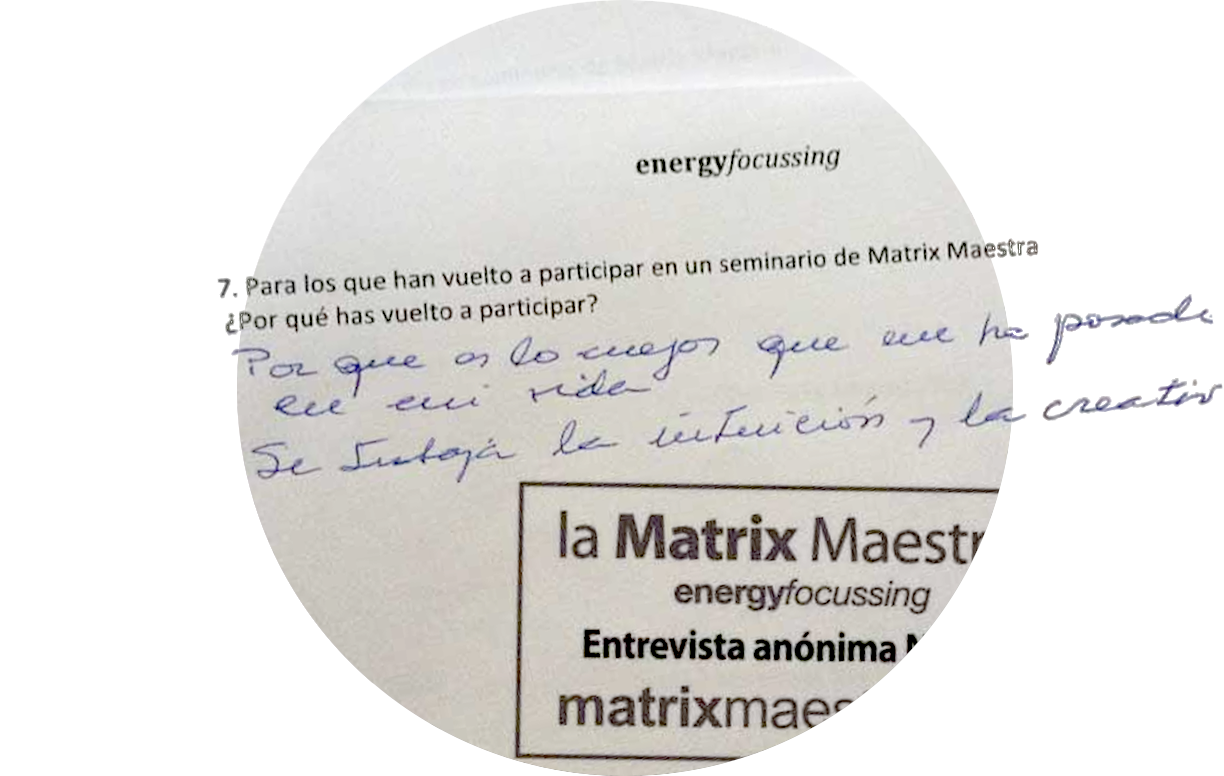 energyfocussing
7. Para los que han vuelto a participar en un seminario de Matrix Maestra
¿Por qué has vuelto a participar?
Por que es lo mejor que me ha pasado
en mi vida
Se trabaja la intuición y la creativ
la Matrix Maestr
energyfocussing
Entrevista anónima
matrixmaes